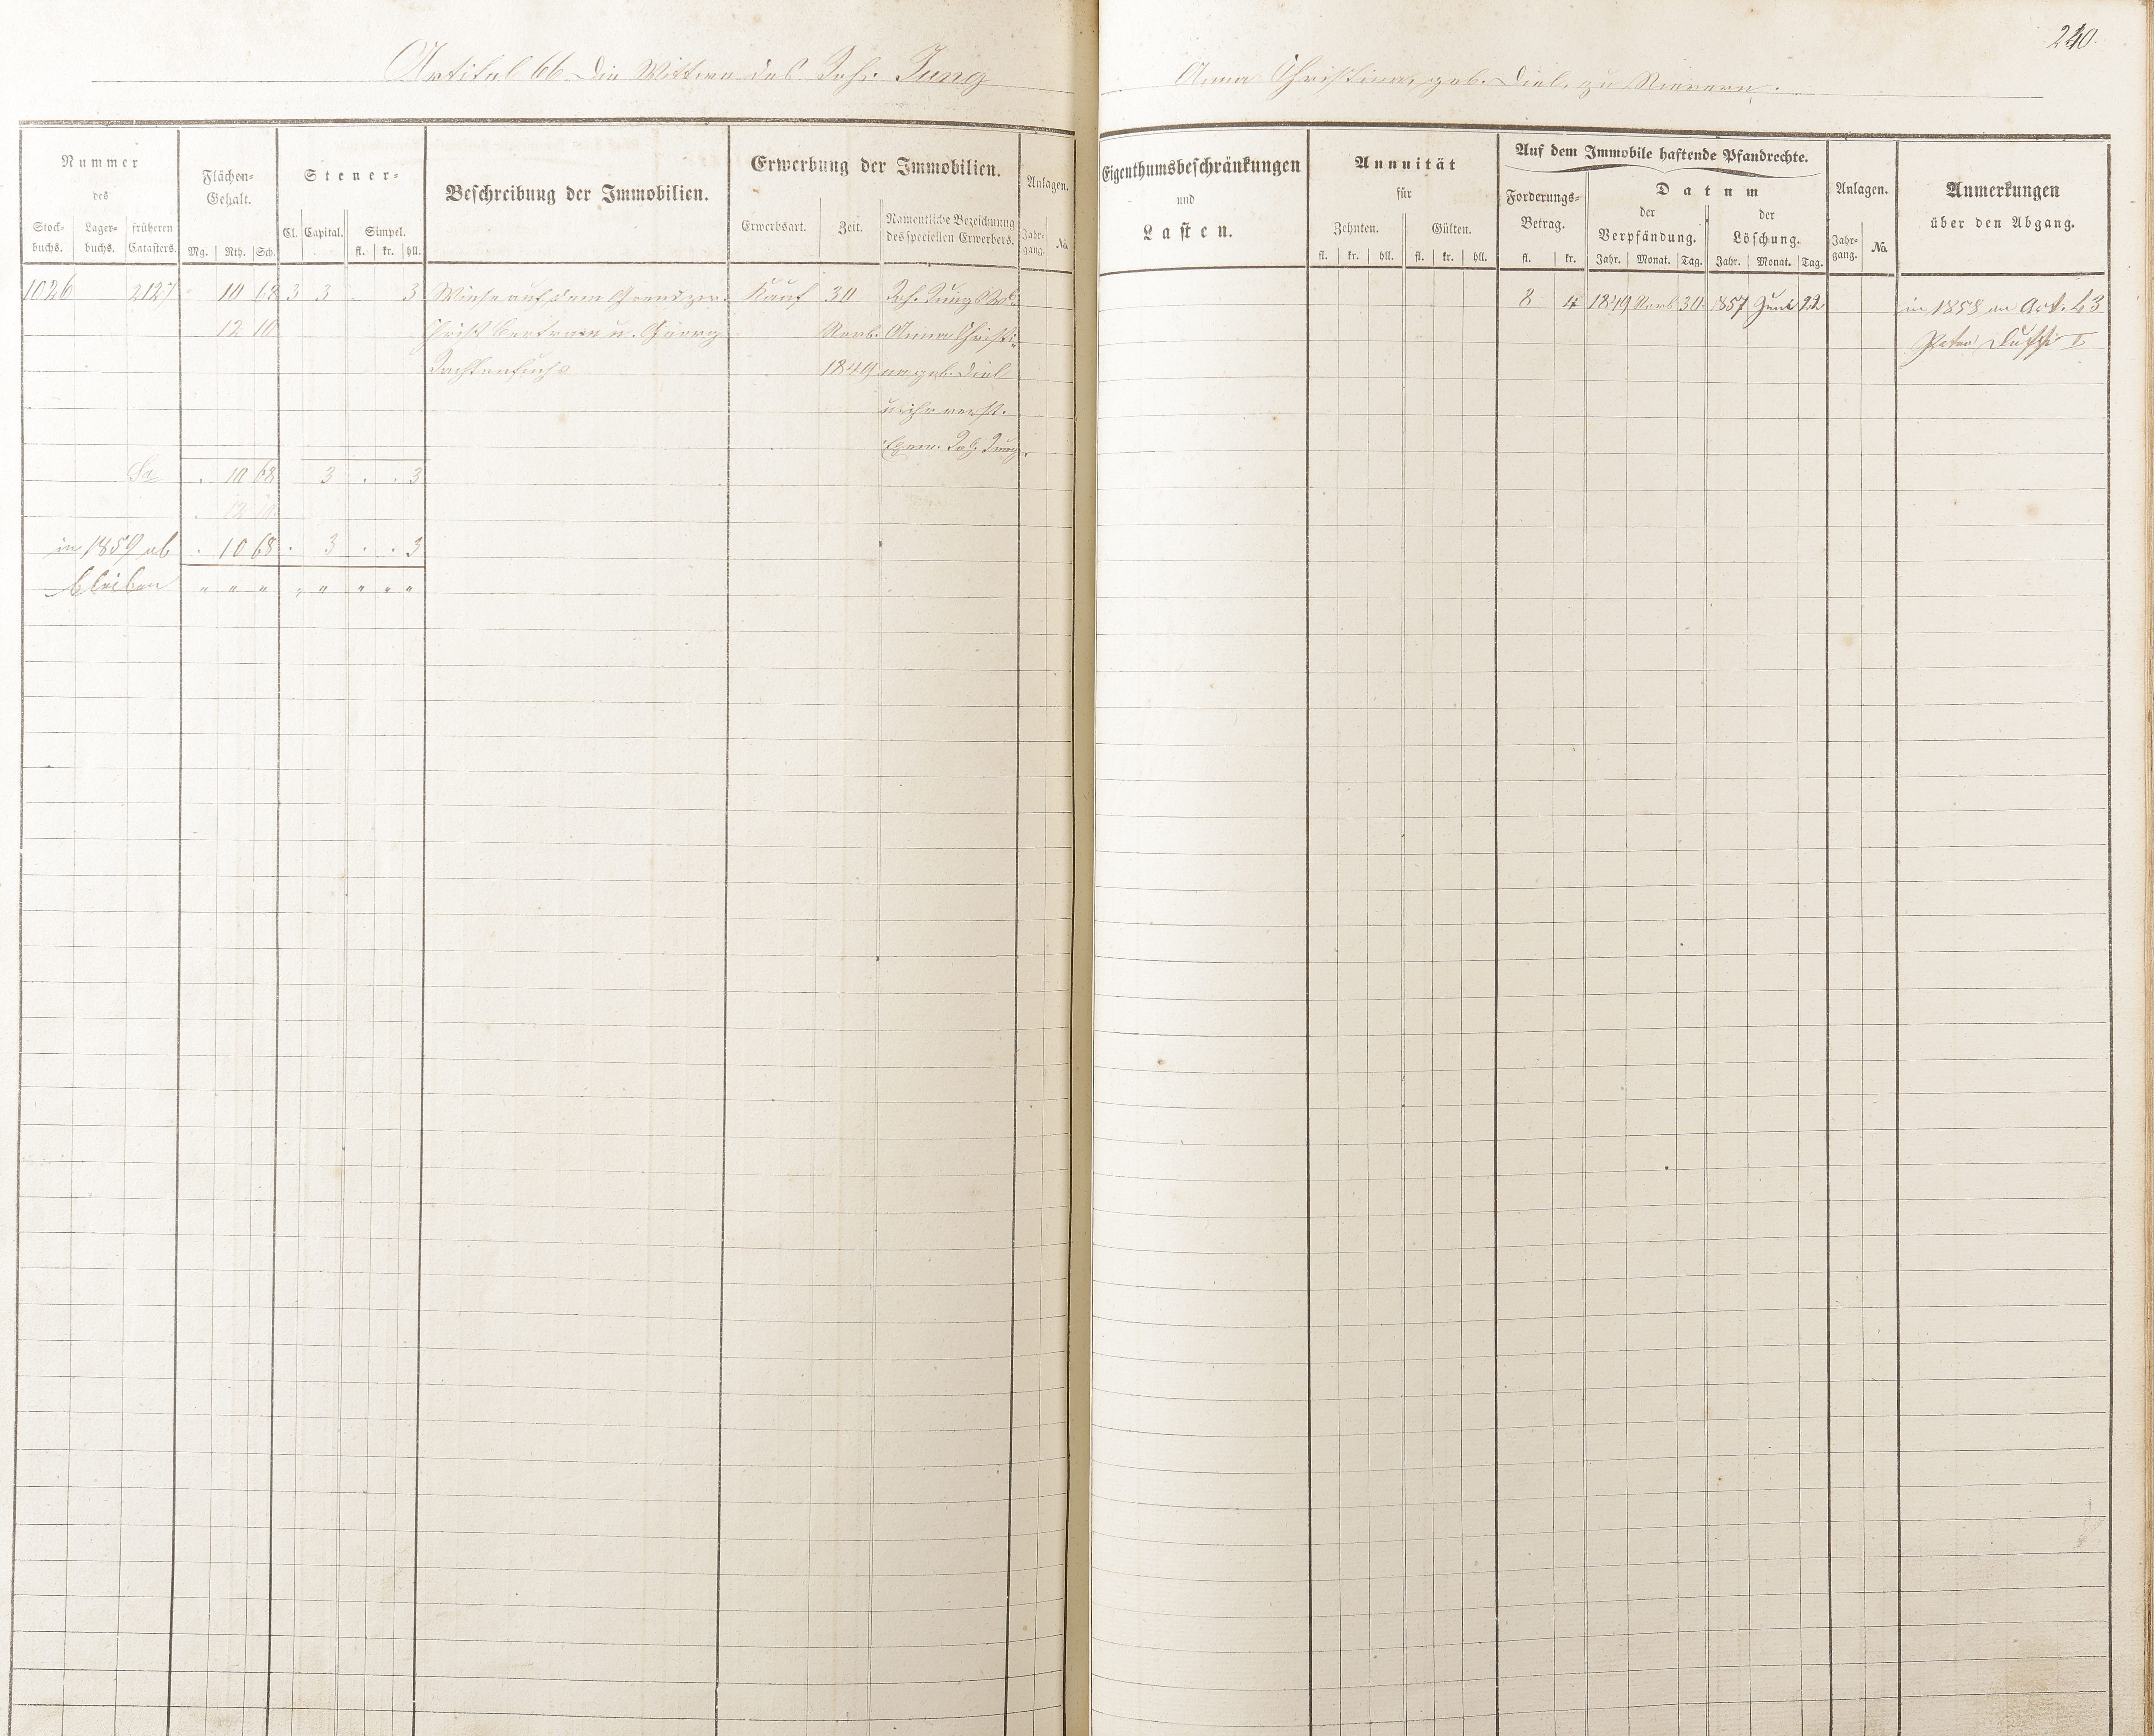 240.
Artikel 66. Die Wittwe des Joh. Jung Anna Christina, geb. Diel, zu Nievern.
Nummer
des
Stock-
buchs.
Lager-
buchs.
früheren
Catasters.
Flächen-
Gehalt.
Mg. Rth. Sch.
Steuer-
Cl. Capital. Simpel.
fl. kr. hll.
Beschreibung der Immobilien.
Erwerbung der Immobilien.
Erwerbsart. Zeit.
Namentliche Bezeichnung
des speciellen Erwerbers.
Anlagen.
Jahr-
gang.
No.
Eigenthumsbeschränkungen
und
Lasten.
Annuität
für
Zehnten. Gülten.
fl. kr. hll. fl. kr. hll.
Auf dem Immobile haftende Pfandrechte.
Forderungs-
Betrag.
fl. kr.
Datum
der
Verpfändung.
der
Löschung.
Jahr. Monat. Tag. Jahr. Monat. Tag.
Anlagen.
Jahr-
gang.
No.
Anmerkungen
über den Abgang.
1026 2127 10 68 3 3 . 3 Wiese auf dem zw. Kauf 30 Joh. Jungs Wb. 8 4 1849 Novb 30 1857 Juni 22 in 1858 an Art. 43
12 10 Christ Bertram u. Georg Novb. Anna Christi- Peter I
1849 na geb. Diel
u ihr verst.
Ehem. Joh. Jung.
Sa . 10 68 3 . . 3
12 10
in 1859 ab . 10 68 . 3 . . 3
bleiben " " " " " " " "